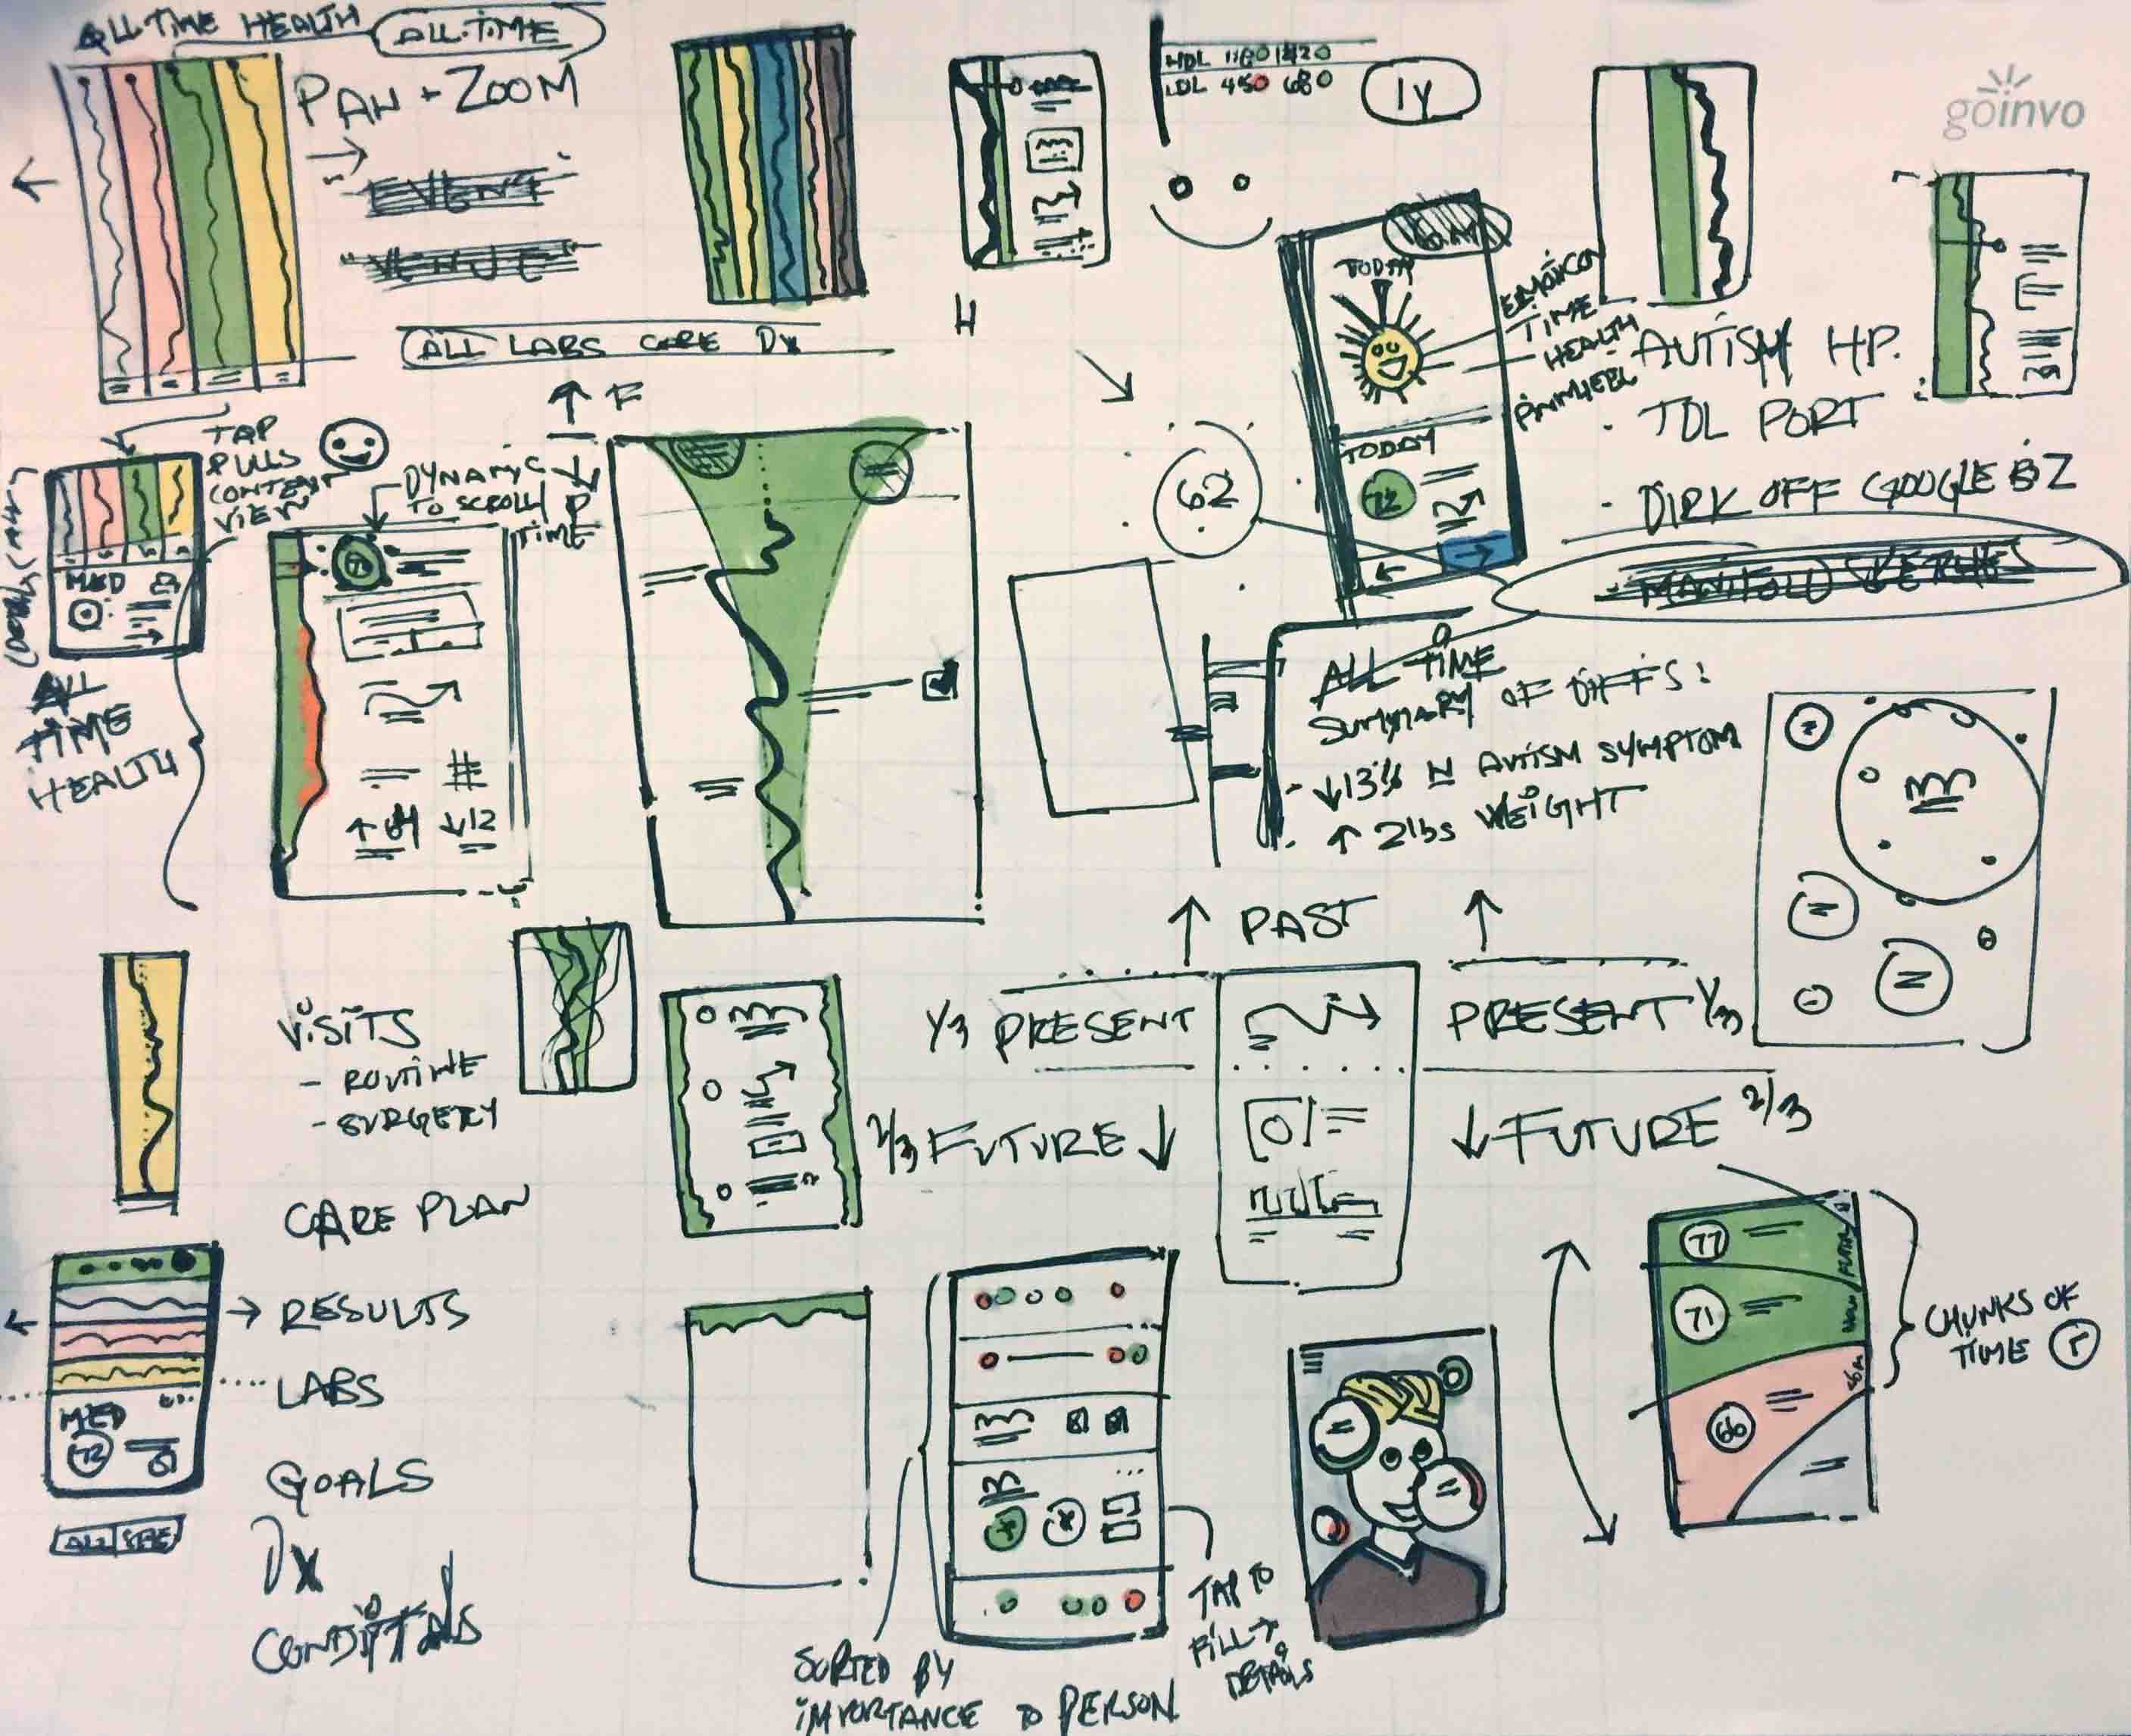 ALL-TIME HEALTH
ALL-TIME
PAN + ZOOM
EVENT
VENUE
ALL LABS CARE Dx
HDL
LDL 450 680
1Y
goinvo
TODAY
EMOTICON
TIME
HEALTH
PINWHEEL
TODAY
72
H
AUTISM HP.
· TDL PORT
· DIRK OFF GOOGLE BZ
MANIFOLD SKETCHES
TAP
PULLS
CONTENT
VIEW
↑ F
DYNAMIC
TO SCROLL/
TIME
↓ P
MED
ALL
TIME
HEALTH
#
↓12
62
ALL TIME
SUMMARY OF DIFFS:
- ↓13% IN AUTISM SYMPTOM
- ↑ 2lbs WEIGHT
↑ PAST ↑
1/3 PRESENT
PRESENT 1/3
2/3 FUTURE ↓
↓ FUTURE 2/3
VISITS
- ROUTINE
- SURGERY
CARE PLAN
RESULTS
LABS
GOALS
Dx
CONDITIONS
MED
72
ALL
77
71
60
CHUNKS OF
TIME
SORTED BY
IMPORTANCE TO PERSON
TAP TO
FILL →
DETAILS